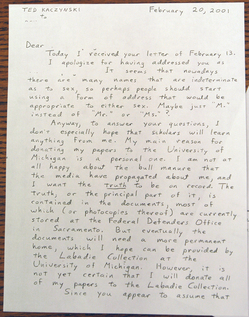 TED KACZYNSKI February 20, 2001
Dear
Today I received your letter of February 13.
I apologize for having addressed you as
It seems that nowadays
there are many names that are indeterminate
as to sex, so perhaps people should start
using a form of address that would be
appropriate to either sex. Maybe just "M."
instead of "Mr." or "Ms."?
Anyway, to answer your questions, I
don't especially hope that scholars will learn
anything from me. My main reason for
donating my papers to the University of
Michigan is a personal one. I am not at
all happy about the bull manure that
the media have propagated about me, and
I want the truth to be on record. The
truth, or the part of it is
contained in the documents, most of
which (or photocopies thereof) are currently
stored at the Federal Defenders Office
in Sacramento. But eventually the
documents will need a more permanent
home, which I hope can be provided by
the Labadie Collection at the
University of Michigan. However, it is
not yet certain that I will donate all
of my papers to the Labadie Collection.
Since you appear to assume that